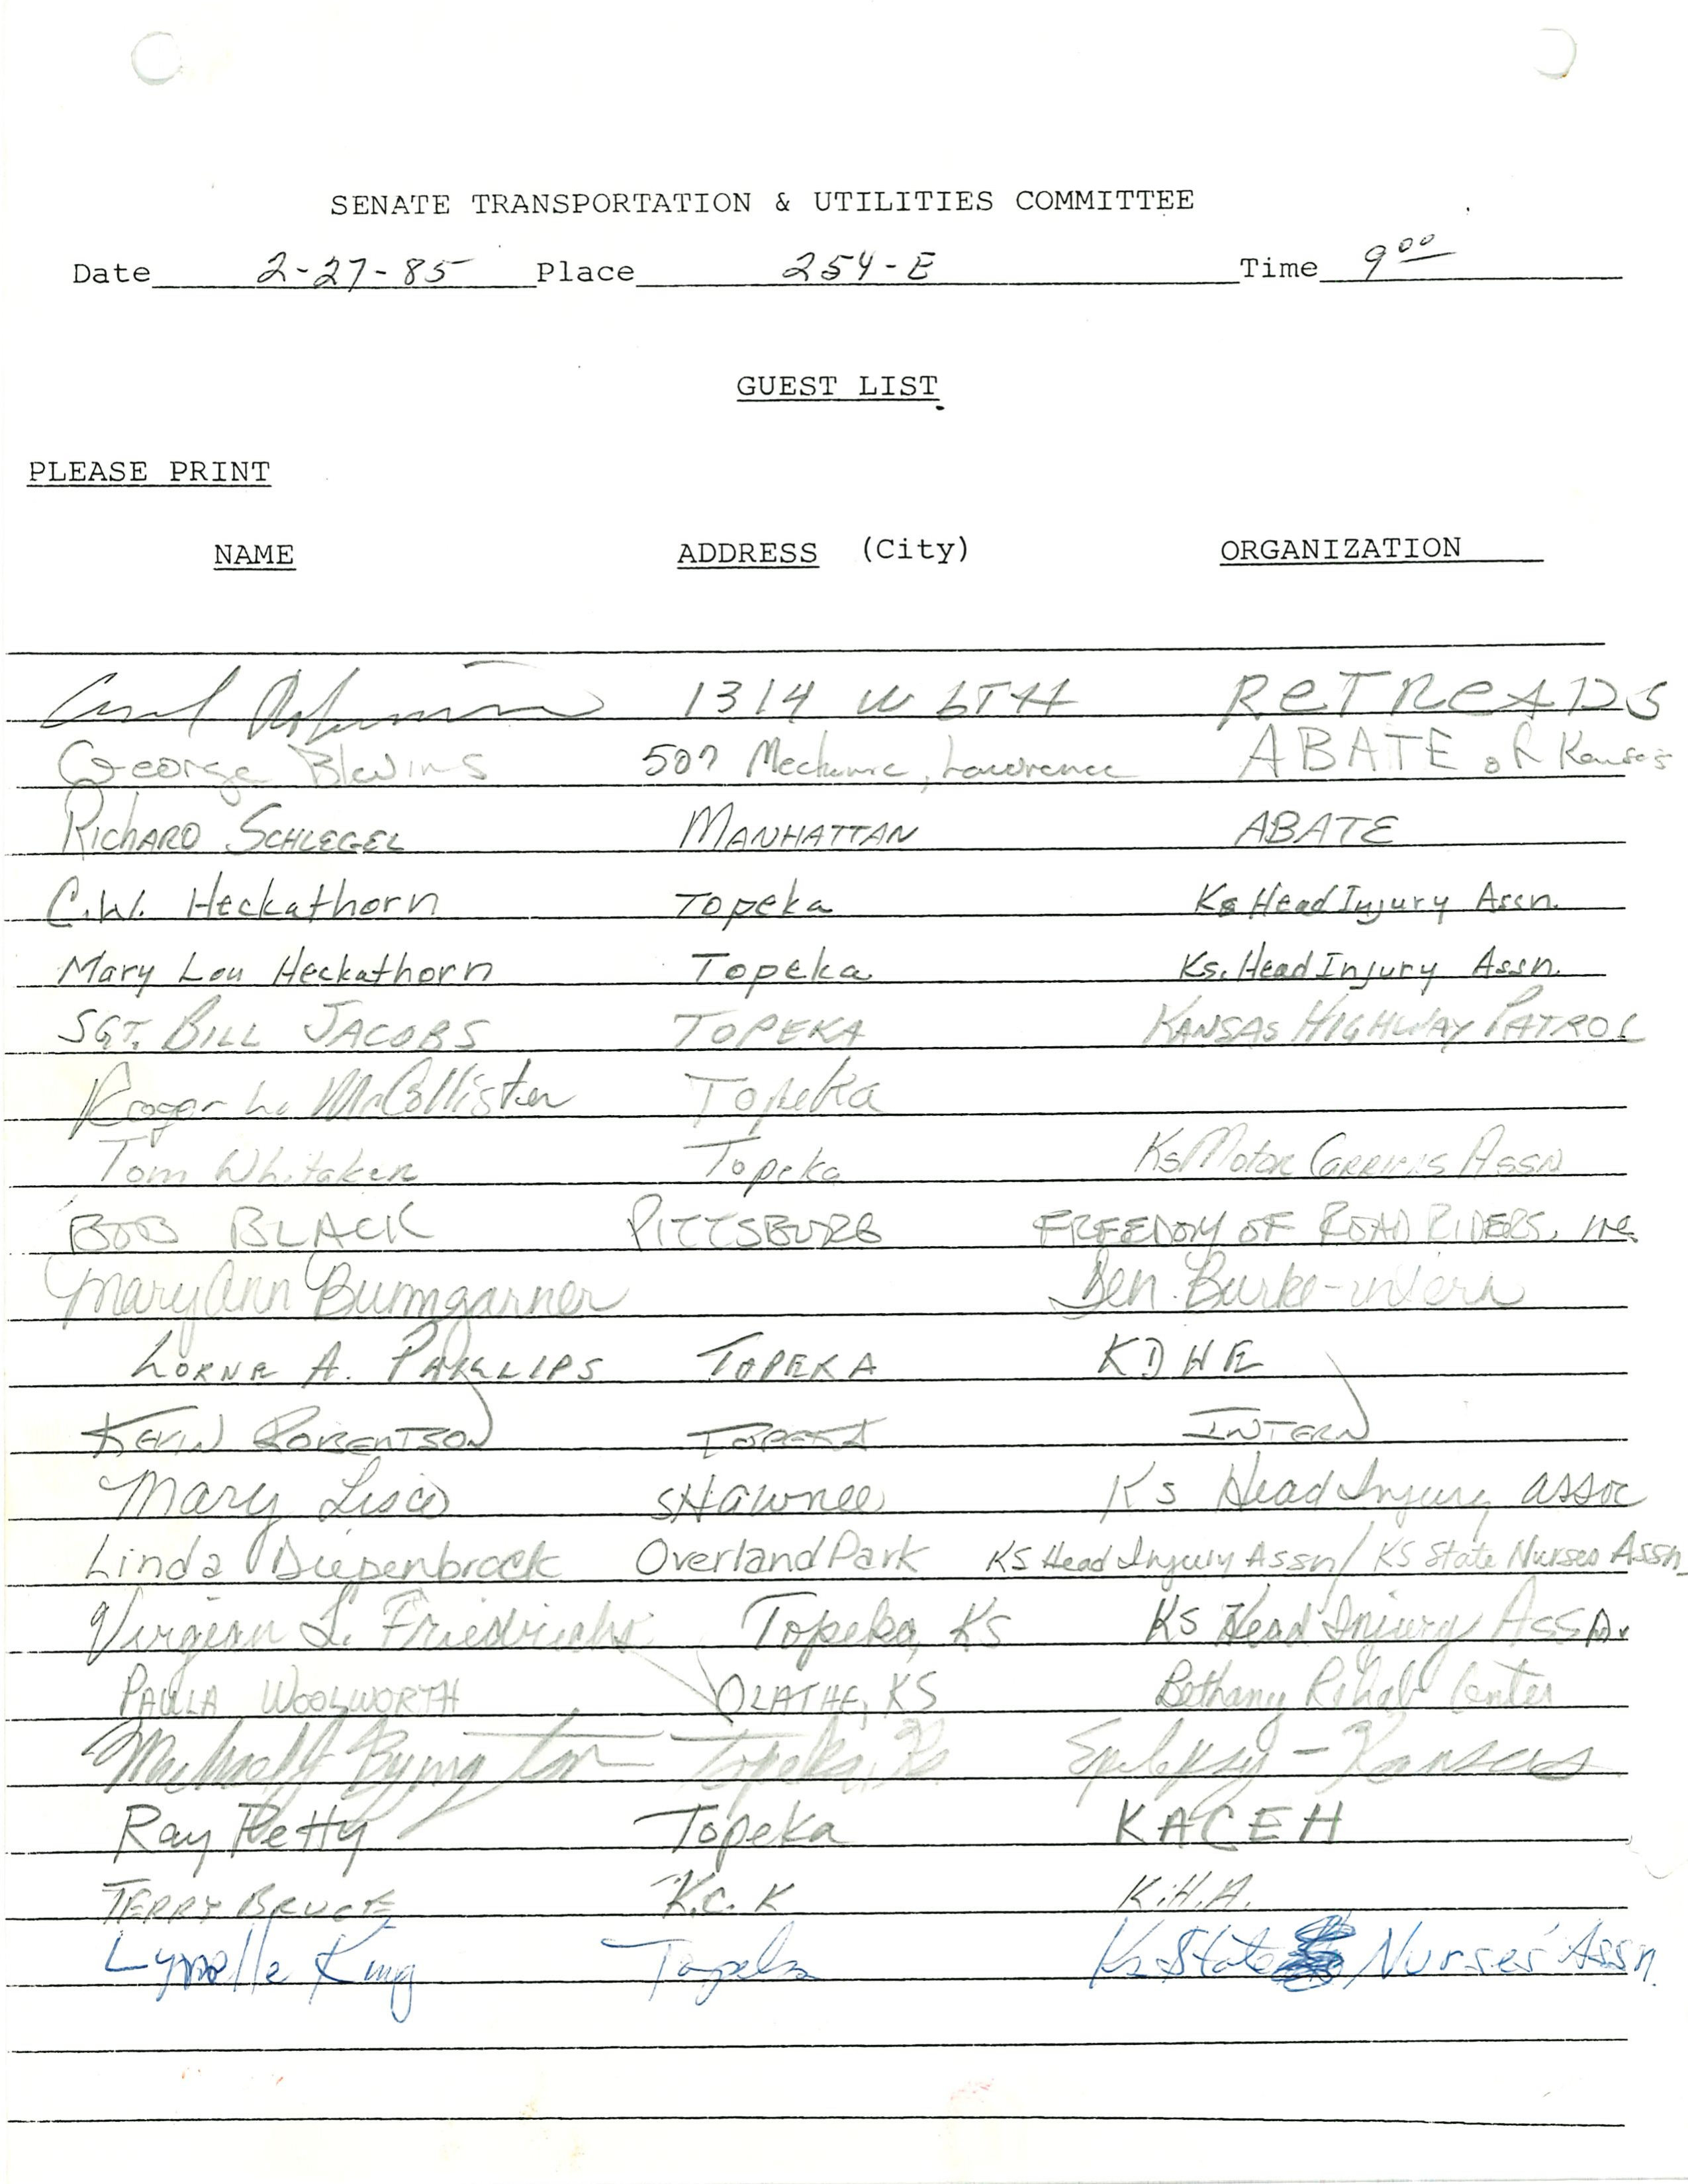 SENATE TRANSPORTATION & UTILITIES COMMITTEE
Date 2-27-85 Place 254-E Time 9 00
GUEST LIST
PLEASE PRINT
NAME ADDRESS (City) ORGANIZATION
1314 W 6TH ReTReADS
George Blevins 507 Mechanic, Lawrence ABATE of Kansas
RichARD SCHLEGEL MANHATTAN ABATE
C.W. Heckathorn Topeka Ks Head Injury Assn.
Mary Lou Heckathorn Topeka Ks. Head Injury Assn.
SGT. BILL JACOBS TOPEKA KANSAS HIGHWAY PATROL
Roger L. McCollister Topeka
Tom Whitaker Topeka Ks Motor CARRIERS ASSN
BOB BLACK PITTSBURG FREEDOM OF ROAD RIDERS, INC.
Mary Ann Bumgarner Sen. Burke-intern
LORNE A. PHILLIPS TOPEKA KDHE
KEVIN ROBERTSON TOPEKA INTERN
Mary Lisco SHawnee Ks Head Injury assoc
Linda Diepenbrock Overland Park KS Head Injury Assn/ KS State Nurses Assn
L. Friedrichs Topeka, Ks Ks Head Injury Assn.
PAULA WOOLWORTH OLATHE, KS Bethany Rehab Center
Michael Byington Topeka, Ks Epilepsy - Kansas
Ray Petty Topeka KACEH
TERRY BRUCE K.C. K K.H.A.
Lynelle King Topeka Ks State Nurses' Assn.